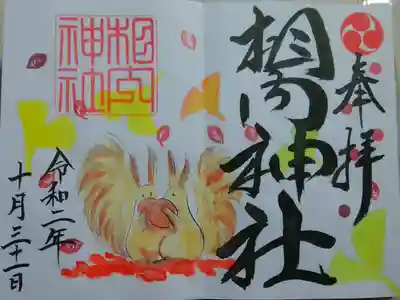 奉拝
相内神社
相内
神社
令和二年
十月三十一日